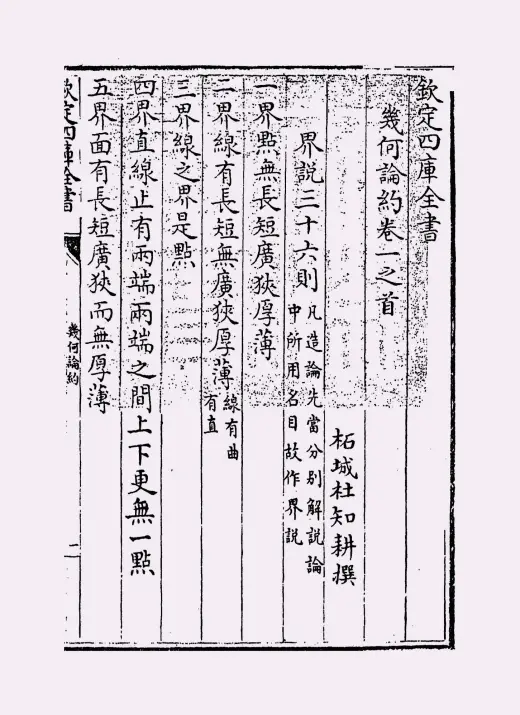 欽定四庫全書
幾何論約卷一之首
柘城杜知耕撰
界説三十六則凡造論先當分别解説論
中所用名目故作界説
一界點無長短廣狹厚薄
二界線有長短無廣狹厚薄線有曲
有直
三界線之界是點
四界直線止有兩端兩端之間上下更無一點
五界面有長短廣狹而無厚薄
欽定四庫全書
幾何論約
一